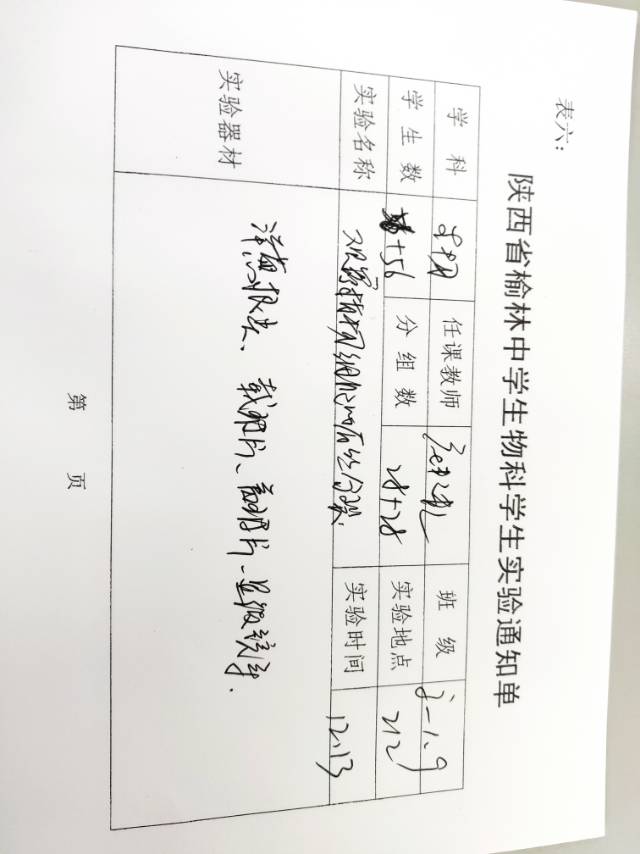 表六：
陕西省榆林中学生物科学生实验通知单
学科 生物 任课教师 班级
学生数 +56 分组数 28+28 实验地点 212
实验名称 观察植物细胞的有丝分裂 实验时间 12.13
实验器材 洋葱根尖、载玻片、盖玻片、显微镜等.
第 页